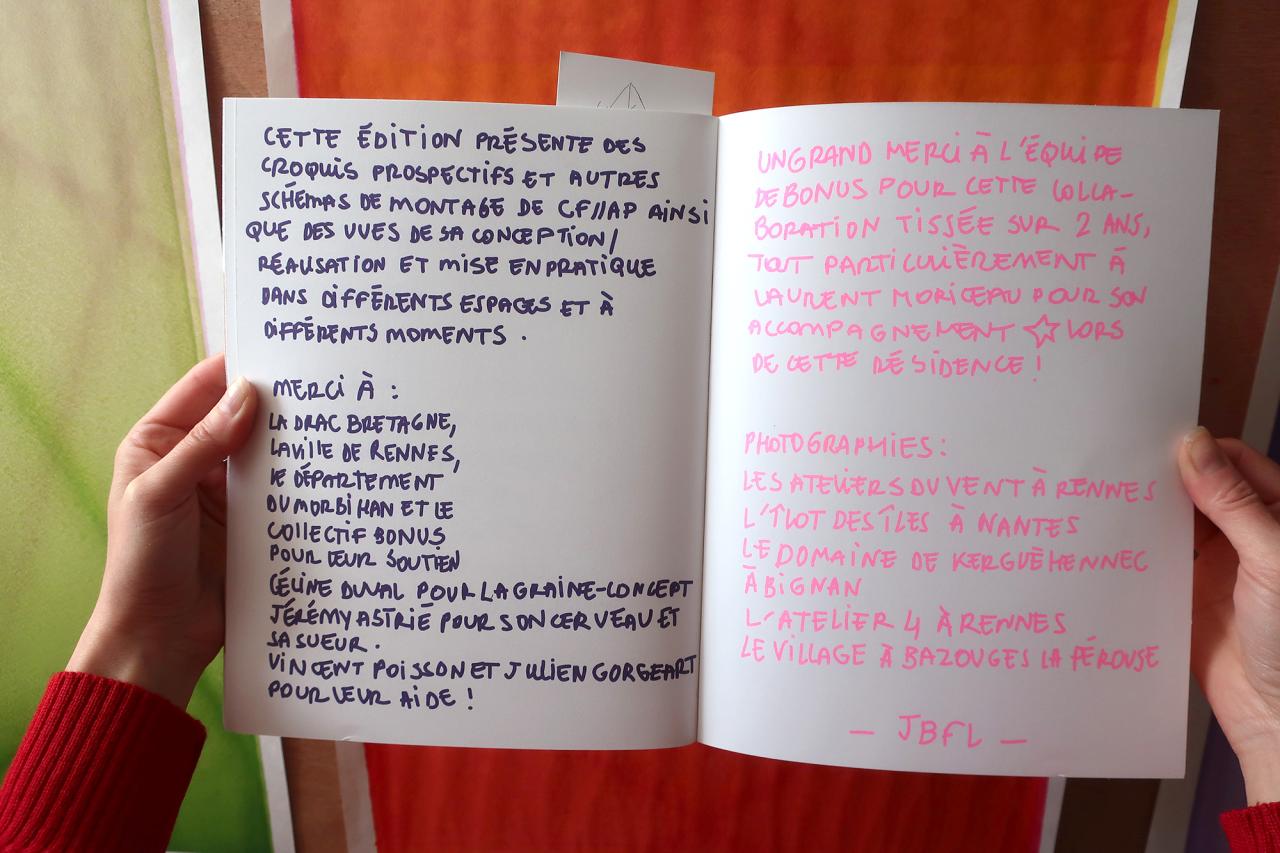 CETTE ÉDITION PRÉSENTE DES
CROQUIS PROSPECTIFS ET AUTRES
SCHÉMAS DE MONTAGE DE CF//AP AINSI
QUE DES VUES DE SA CONCEPTION/
RÉALISATION ET MISE EN PRATIQUE
DANS DIFFÉRENTS ESPACES ET À
DIFFÉRENTS MOMENTS.
MERCI À :
LA DRAC BRETAGNE,
LA VILLE DE RENNES,
LE DÉPARTEMENT
DU MORBIHAN ET LE
COLLECTIF BONUS
POUR LEUR SOUTIEN
CÉLINE DUVAL POUR LA GRAINE-CONCEPT
JÉRÉMY ASTRIÉ POUR SON CERVEAU ET
SA SUEUR.
VINCENT POISSON ET JULIEN GORGEART
POUR LEUR AIDE !
UN GRAND MERCI À L'ÉQUIPE
DE BONUS POUR CETTE COLLA-
BORATION TISSÉE SUR 2 ANS,
TOUT PARTICULIÈREMENT À
LAURENT MORICEAU POUR SON
ACCOMPAGNEMENT ☆ LORS
DE CETTE RÉSIDENCE !
PHOTOGRAPHIES :
LES ATELIERS DU VENT À RENNES
L'ÎLOT DES ÎLES À NANTES
LE DOMAINE DE KERGUÉHENNEC
À BIGNAN
L'ATELIER 4 À RENNES
LE VILLAGE À BAZOUGES LA PÉROUSE
— JBFL —